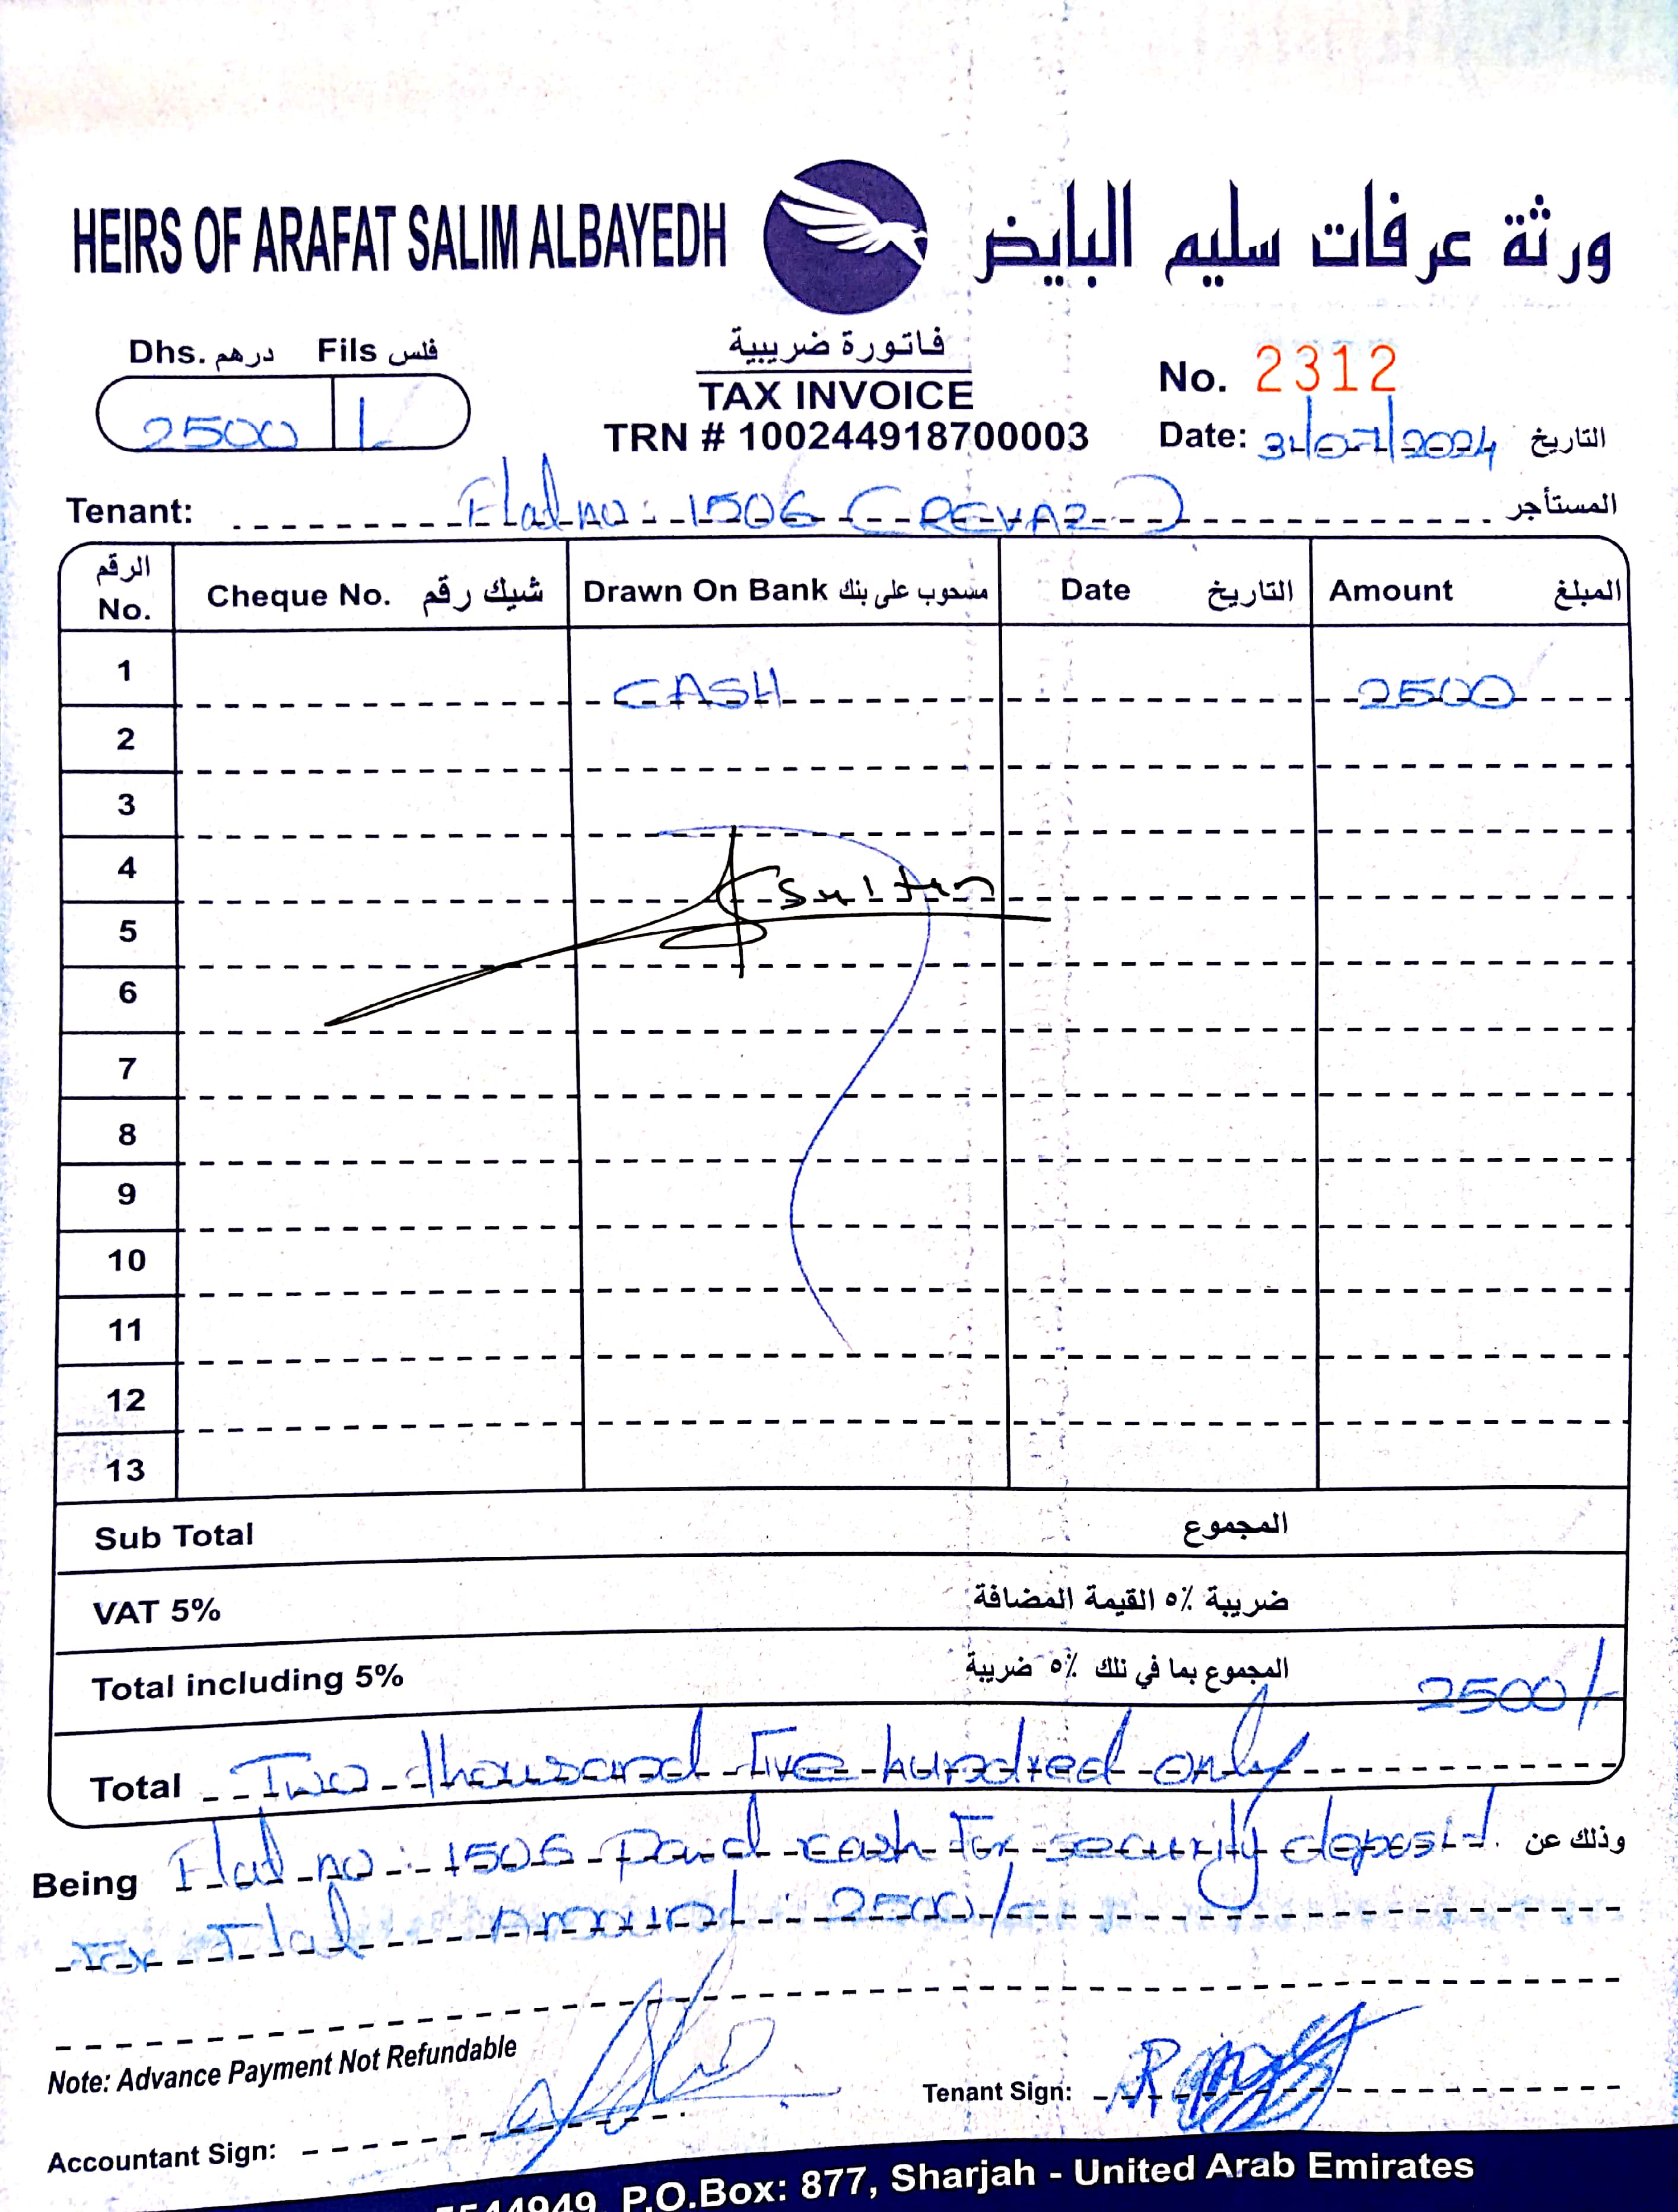 HEIRS OF ARAFAT SALIM ALBAYEDH ورثة عرفات سليم البايض
Dhs. درهم Fils فلس
2500
فاتورة ضريبية
TAX INVOICE
TRN # 100244918700003
No. 2312
Date: 31/07/2024 التاريخ
Tenant: Flat no: 1506 (REVAZ) المستأجر
الرقم No. Cheque No. شيك رقم Drawn On Bank مسحوب على بنك Date التاريخ Amount المبلغ
1 CASH 2500
2
3
4
Sultan
5
6
7
8
9
10
11
12
13
Sub Total المجموع
VAT 5% ضريبة ٥٪ القيمة المضافة
Total including 5% المجموع بما في ذلك ٥٪ ضريبة 2500/-
Total Two thousand Five hundred only
Being Flat no: 1506 Paid cash For security deposit وذلك عن
For Flat Amount: 2500/-
Note: Advance Payment Not Refundable
Tenant Sign:
Accountant Sign:
5544949, P.O.Box: 877, Sharjah - United Arab Emirates